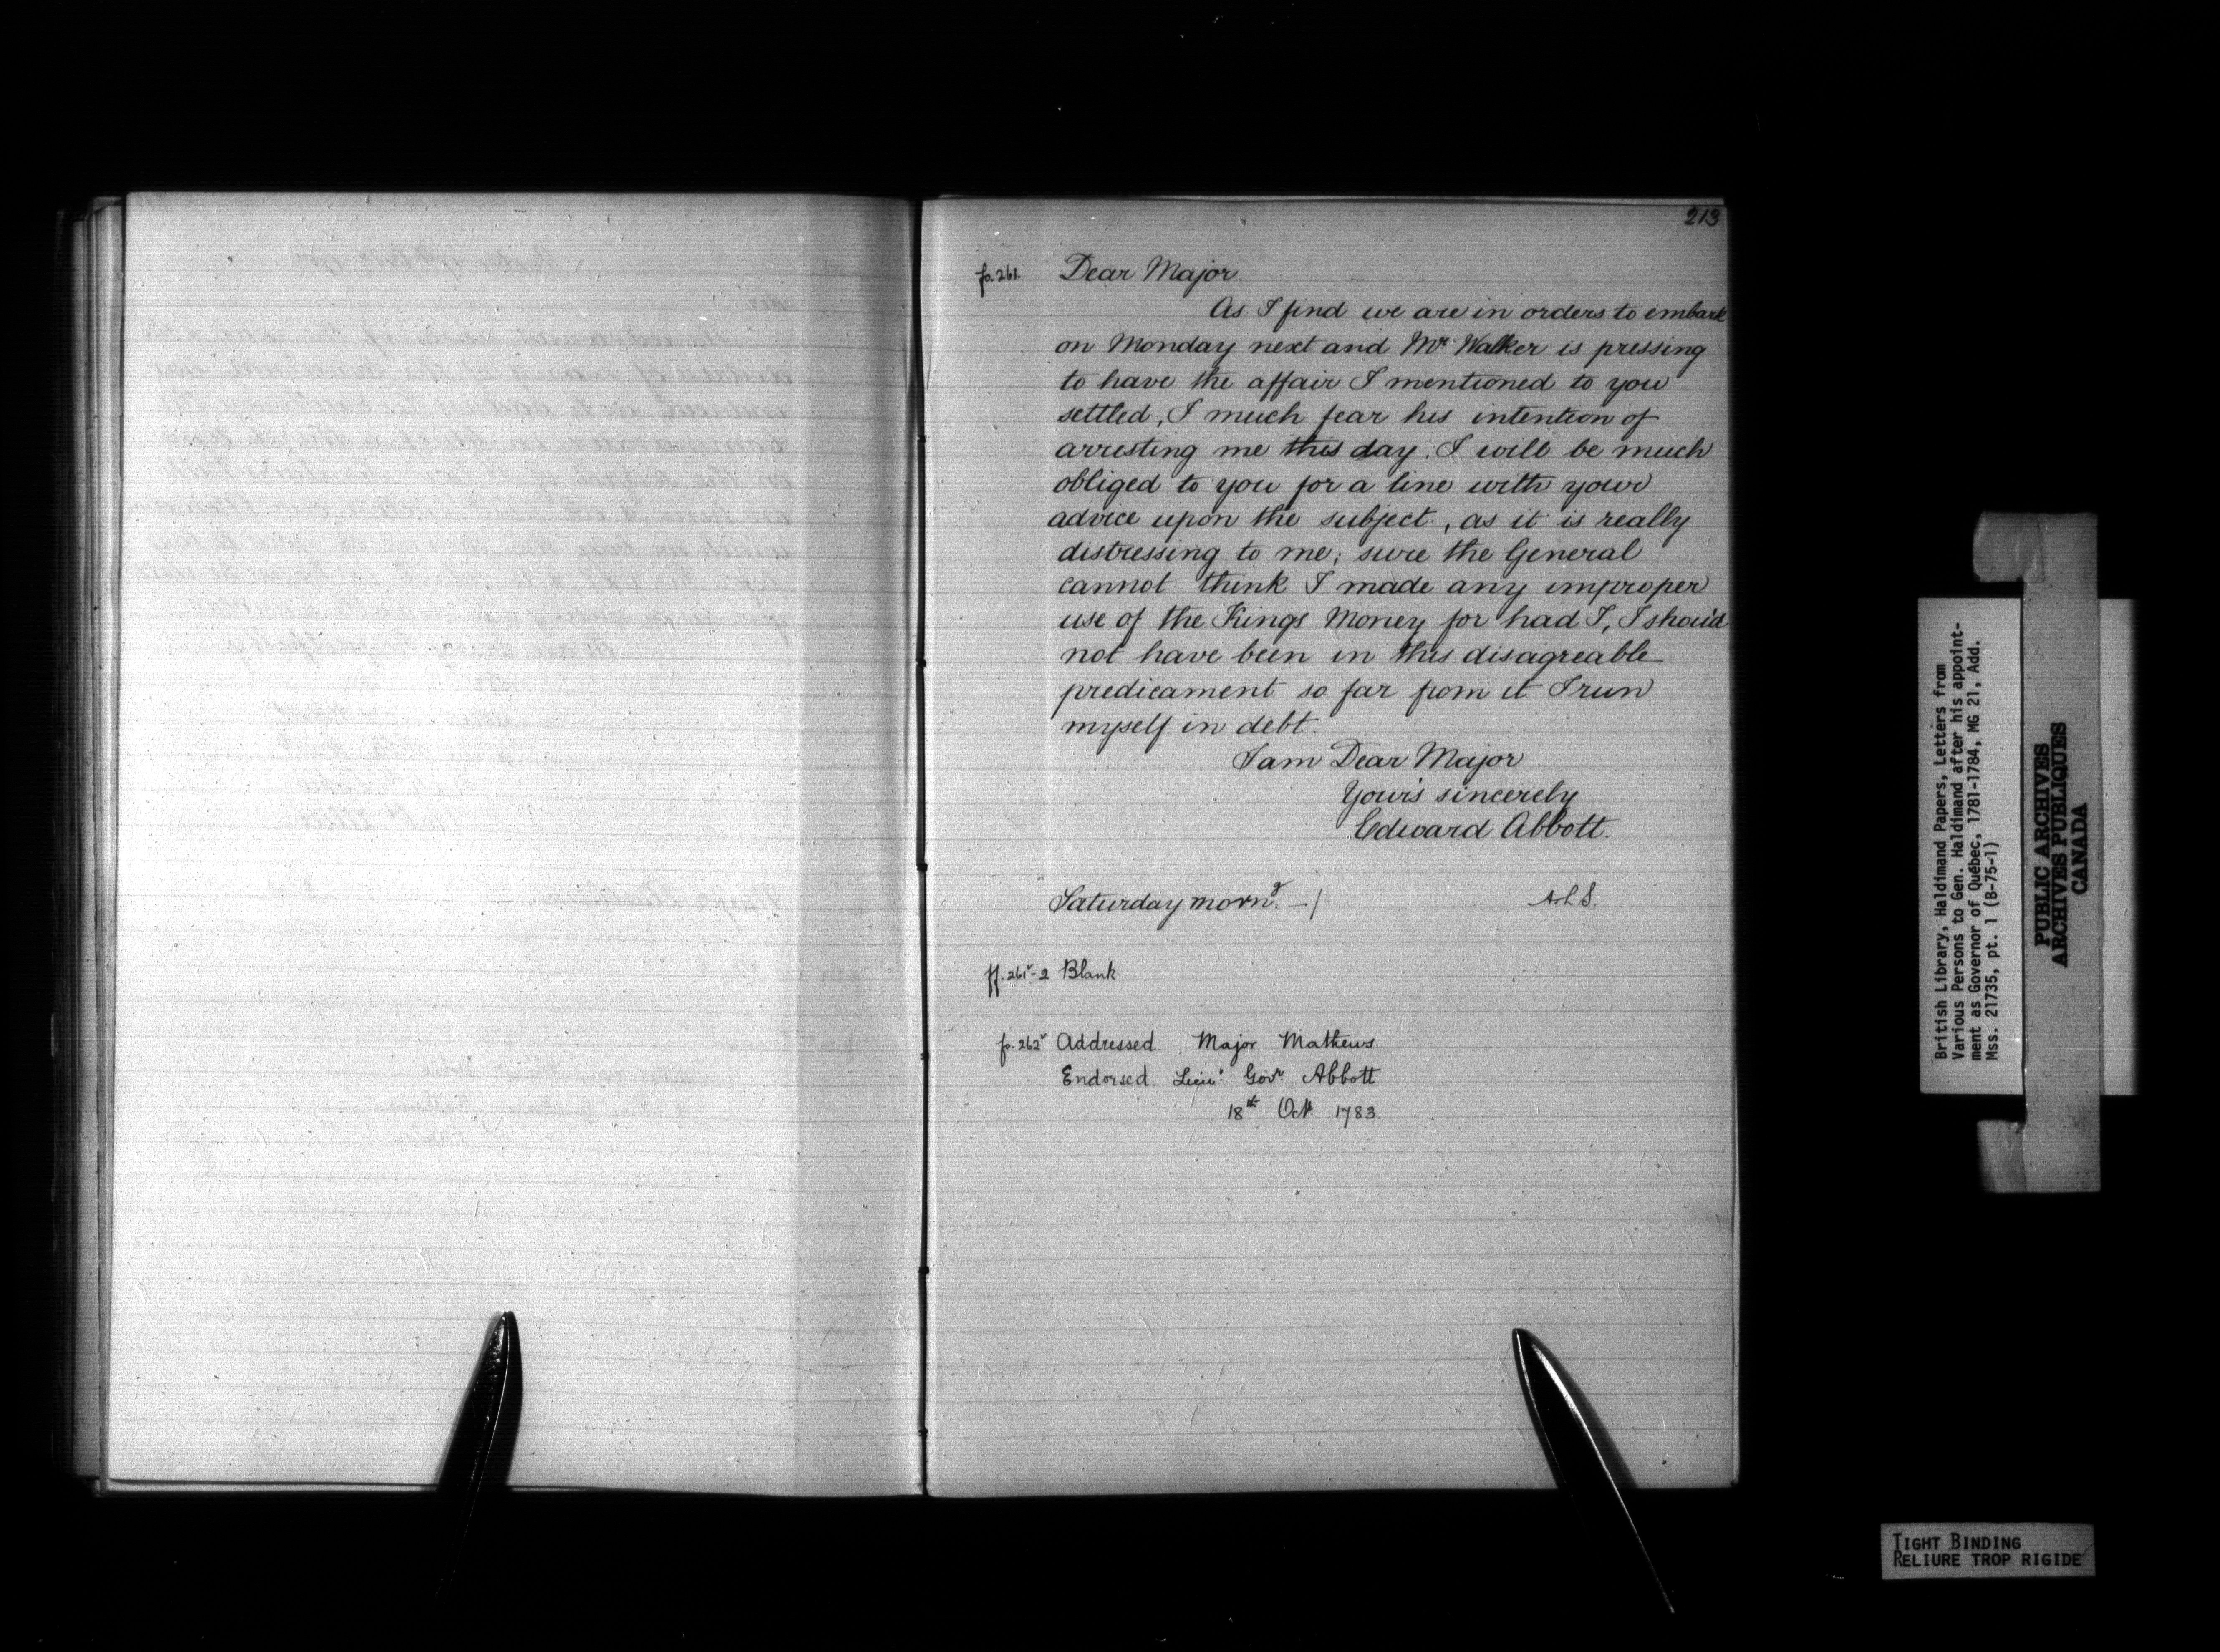 213
fo. 261. Dear Major
As I find we are in orders to embark
on Monday next and Mr. Walker is pressing
to have the affair I mentioned to you
settled, I much fear his intention of
arresting me this day. I will be much
obliged to you for a line with your
advice upon the subject, as it is really
distressing to me; sure the General
cannot think I made any improper
use of the Kings Money for had I, I shou'd
not have been in this disagreable
predicament so far from it I run
myself in debt.
I am Dear Major
Yours sincerely
Edward Abbott.
Saturday morng. —/ A.L.S.
ff. 261v-2 Blank
fo. 262v Addressed. Major Mathews
Endorsed. Lieut. Govr. Abbott
18th Oct 1783.
British Library, Haldimand Papers, Letters from
Various Persons to Gen. Haldimand after his appoint-
ment as Governor of Québec, 1781-1784, MG 21, Add.
Mss. 21735, pt. 1 (B-75-1)
PUBLIC ARCHIVES
ARCHIVES PUBLIQUES
CANADA
TIGHT BINDING
RELIURE TROP RIGIDE